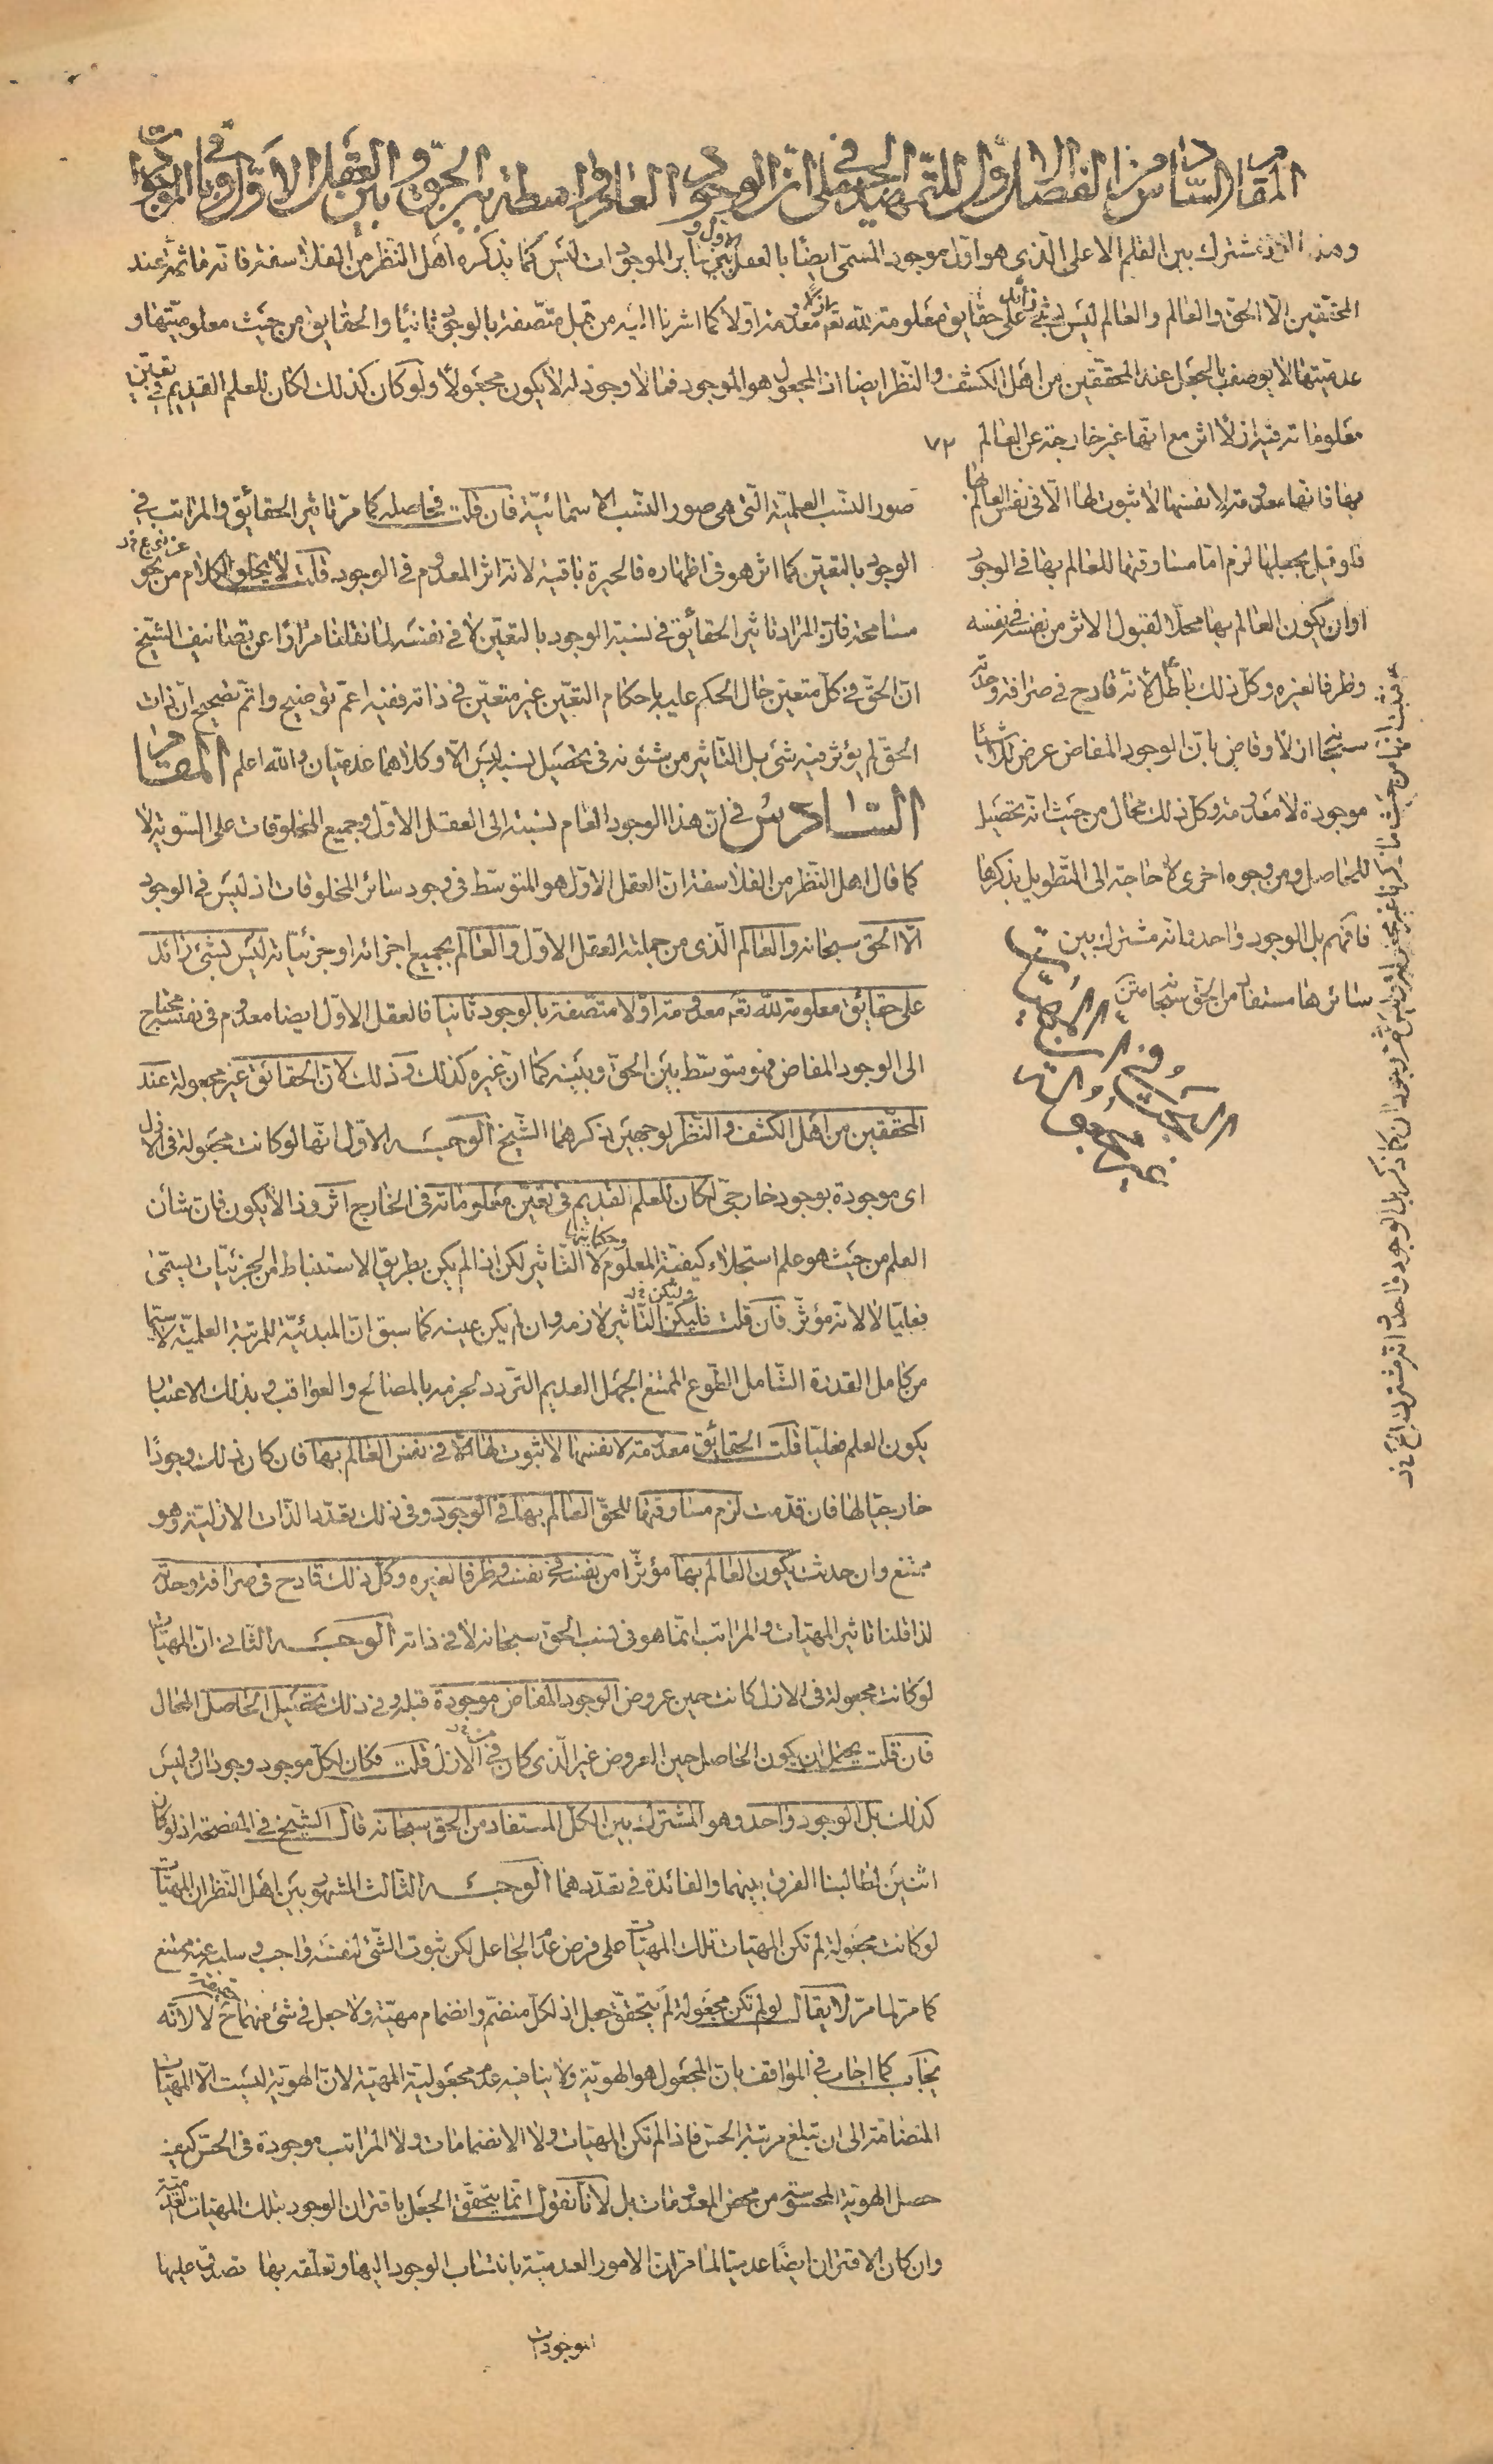 المقام السادس من الفصل الاول للتمهيد الجملى فى ان الوجود العام رابطة بين الحق و بين العقل الاول و باقى الموجودات
وهذا مشترك بين القلم الاعلى الّذى هو اوّل موجود المسمّى ايضًا بالعقل الاول و بين ساير الموجودات ليس كما يذكره اهل النّظر من الفلاسفة فانه ما ثمّ عند
المحقّقين الّا الحقّ والعالم والعالم ليس بشئ زائد على حقايق معلومة لله تعم معدومة اوّلا كما اشرنا اليه من قبل متّصفة بالوجود ثانيًا والحقايق من حيث معلوميّتها و
عدميّتها لا يوصف بالجعل عند المحققين من اهل الكشف والنّظر ايضا اذ المجعول هو الموجود فما لا وجود له لا يكون مجعولًا ولو كان كذلك لكان للعلم القديم فى تعيّن
معلوماته فيه ازلًا اثر مع انّها غير خارجة عن العالم ٧٢
بها فانها معدومة لانفسها لا ثبوت لها الّا فى نفس العالم بها
فلو قيل بجعلها لزم امّا مساوقتها للعالم بها فى الوجود
او ان يكون العالم بها محلّا لقبول الاثر من نفسه فى نفسه
وظرفا لغيره وكلّ ذلك باطل لانّه قادح فى صرافة وحدته
سبحانه ازلا وقاض بانّ الوجود المفاض عرض لاشياء
موجودة لا معدومة وكل ذلك محال من حيث انّه تحصيل
للحاصل ومن وجوه اخرى لا حاجة الى التّطويل بذكرها
فافهم بل الوجود واحد وانه مشترك بين
سائرها مستفاد من الحق سبحانه متن
صور النسب العلميّة الّتى هى صور النّسب الاسمائيّة فان قلت فحاصله كما مرّ تاثير الحقائق والمراتب فى
الوجود بالتعيّن كما اثر هو فى اظهاره فالحيرة باقية لانه اثر المعدوم فى الوجود قلت لا يخلو الكلام من نحو
مسامحة فانّ المراد تاثير الحقائق فى نسبة الوجود بالتعيّن لا فى نفسه لما نقلنا مرارًا عن تصانيف الشّيخ
انّ الحقّ فى كلّ متعيّن حال الحكم عليه باحكام التعيّن غير متعيّن فى ذاته ففيه اعمّ توضيح واتمّ تصحيح انّ ذات
الحقّ لم يؤثر فيه شئ بل التّاثير من شئونه فى تحصيل نسبه ليس الّا وكلاهما عدميّان والله اعلم المقام
السّادس فى انّ هذا الوجود العام نسبته الى العقل الاوّل وجميع المخلوقات على السّوية لا
كما قال اهل النّظر من الفلاسفة انّ العقل الاوّل هو المتوسّط فى وجود سائر المخلوقات اذ ليس فى الوجود
الّا الحقّ سبحانه والعالم الّذى من جملته العقل الاوّل والعالم بجميع اجزائه او جزئيّاته ليس بشئ زائد
على حقائق معلومة لله تعم معدومة اوّلا متّصفة بالوجود ثانيا فالعقل الاوّل ايضا معدوم فى نفسه محتاج
الى الوجود المفاض فهو متوسّط بين الحقّ وبينه كما انّ غيره كذلك وذلك لانّ الحقائق غير مجعولة عند
المحقّقين من اهل الكشف والنّظر لوجهين ذكرهما الشّيخ الوجـه الاوّل انّها لو كانت مجعولة فى الازل
اى موجودة بوجود خارجىّ لكان للعلم القديم فى تعيّن معلوماته فى الخارج اثر وذا لا يكون فان شأن
العلم من حيث هو علم استجلاء كيفيّة المعلوم وحكايتها لا التّاثير لكن اذا لم يكن بطريق الاستنباط من الجزئيّات يسمّى
فعليّا لا لانّه مؤثّر فان قلت فليكن التّاثير لازمه وان لم يكن عينه كما سبق انّ المبدئيّة للمرتبة العلميّة لا سيّما
من كامل القدرة الشّامل الطّوع الممتنع الجهل العديم التّردد لجزمه بالمصالح والعواقب وبذلك الاعتبار
يكون العلم فعليّا قلت الحقائق معدومة لانفسها لا ثبوت لها الّا فى نفس العالم بها فان كان ذلك وجودًا
خارجيّا لها فان قدّمت لزم مساوقتها للحقّ العالم بها فى الوجود وفى ذلك تعدّد الذّات الازليّة وهو
ممتنع وان حدثت يكون العالم بها مؤثّرا من نفسه فى نفسه وظرفا لغيره وكلّ ذلك قادح فى صرافة وحدته
لذا قلنا تاثير المهيّات والمراتب انّما هو فى نسب الحقّ سبحانه لا فى ذاته الوجـه الثّانى انّ المهيّات
لو كانت مجعولة فى الازل كانت حين عروض الوجود المفاض موجودة قبله وفى ذلك تحصيل الحاصل المحال
فان قلت يحتمل ان يكون الحاصل حين العروض غير الّذى كان فى الازل قلت فكان لكلّ موجود وجودان وليس
كذلك بل الوجود واحد وهو المشترك بين الكلّ المستفاد من الحق سبحانه قال الشّيخ فى المفصحة اذ لو كان
اثنين لطالبنا الفرق بينهما والفائدة فى تعدّدهما الوجـه الثّالث المشهور بين اهل النّظر ان المهيّات
لو كانت مجعولة لم تكن المهيّات تلك المهيّات على فرض عدم الجاعل لكن ثبوت الشّئ لنفسه واجب وسلبه عنه ممتنع
كما مرّ لما مرّ لا يقال لو لم تكن مجعولة لم يتحقّق جعل اذ لكلّ منضمّ وانضمام مهيّة ولا جعل فى شئ منهما ح لا لانّه
يجاب كما اجاب فى المواقف بانّ المجعول هو الهويّة ولا ينافيه عدم مجعولية المهيّة لانّ الهويّة ليست الّا المهيّات
المتضامّة الى ان تبلغ مرتبة الحسّ فاذا لم تكن المهيّات ولا الانضمامات ولا المراتب موجودة فى الحس كيف
حصل الهويّة المحسوسة من محض المعدومات بل لانّا نقول انّما يتحقّق الجعل باقتران الوجود بتلك المهيّات العدميّة
وان كان الاقتران ايضًا عدميّا لما مرّ انّ الامور العدميّة بانتساب الوجود اليها وتعلّقه بها تصدق عليها
الموجودات